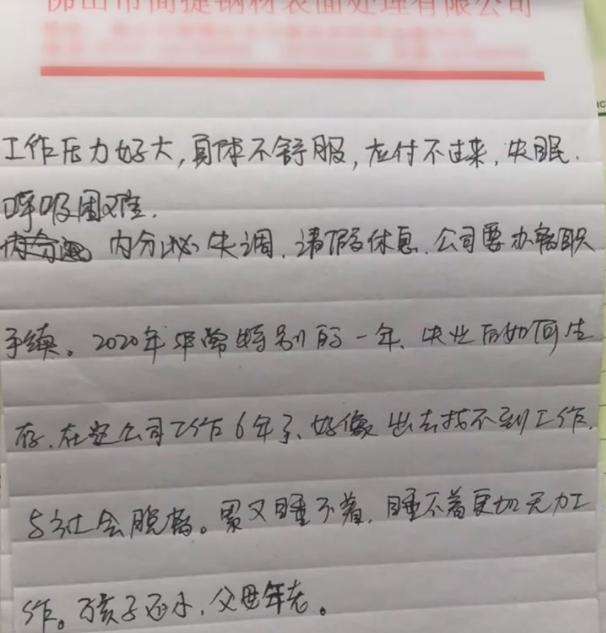 佛山市简捷钢材表面处理有限公司
工作压力好大，身体不舒服，应付不过来，失眠．
呼吸困难．
内分泌失调．请假休息．公司要办辞职
手续。2020年非常特别的一年．失业后如何生
存．在空公司工作6年了．好像出去找不到工作．
与社会脱轨。累又睡不着．睡不着更切无力工
作。孩子还小．父母年老。